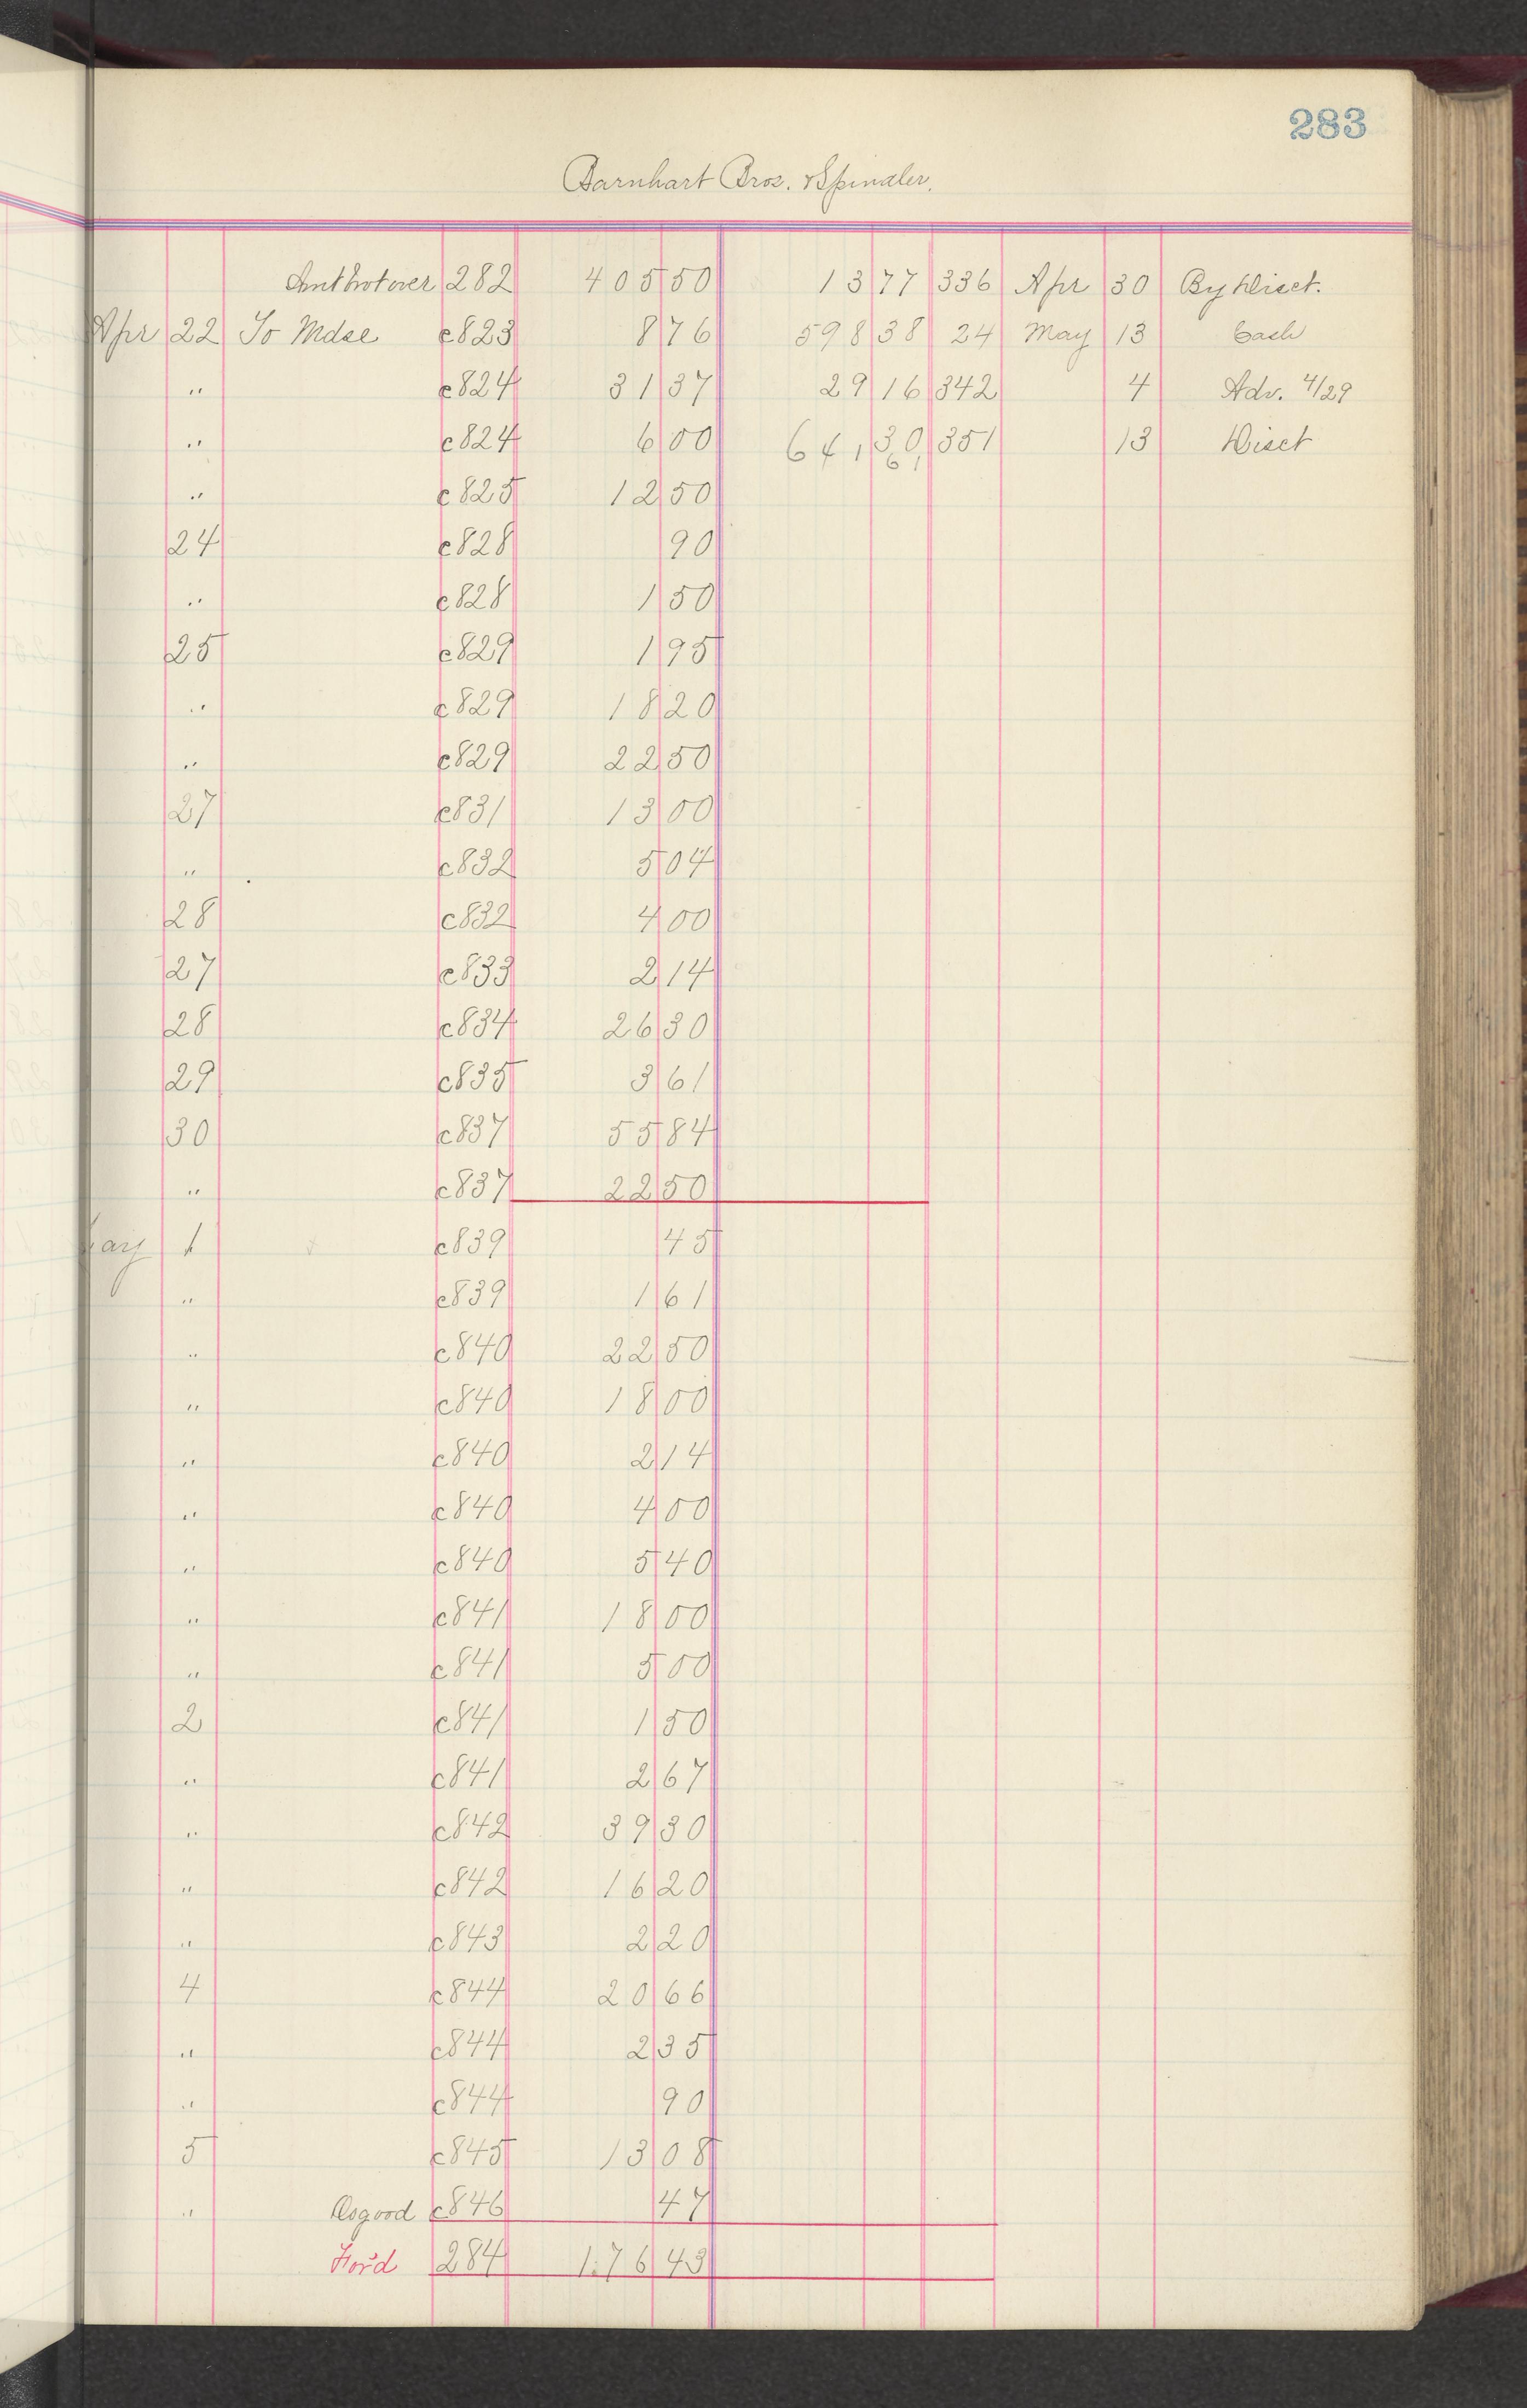 283
Barnhart Bros. & Spindler.
Amt brot over 282 405 50 13 77 336 Apr 30 By Disct.
Apr 22 To Mdse c823 8 76 598 38 24 May 13 Cash
" c824 31 37 29 16 342 4 Adv. 4/29
" c824 6 00 641 30 351 13 Disct
61
" c825 12 50
24 c828 90
" c828 1 50
25 c829 1 95
" c829 18 20
" c829 22 50
27 c831 13 00
" c832 5 04
28 c832 4 00
27 c833 2 14
28 c834 26 30
29 c835 3 61
30 c837 55 84
" c837 22 50
May 1 c839 45
" c839 1 61
" c840 22 50
" c840 18 00
" c840 2 14
" c840 4 00
" c840 5 40
" c841 18 00
" c841 5 00
2 c841 1 50
" c841 2 67
" c842 39 30
" c842 16 20
" c843 2 20
4 c844 20 66
" c844 2 35
" c844 90
5 c845 13 08
" Osgood c846 47
For'd 284 1.76 43